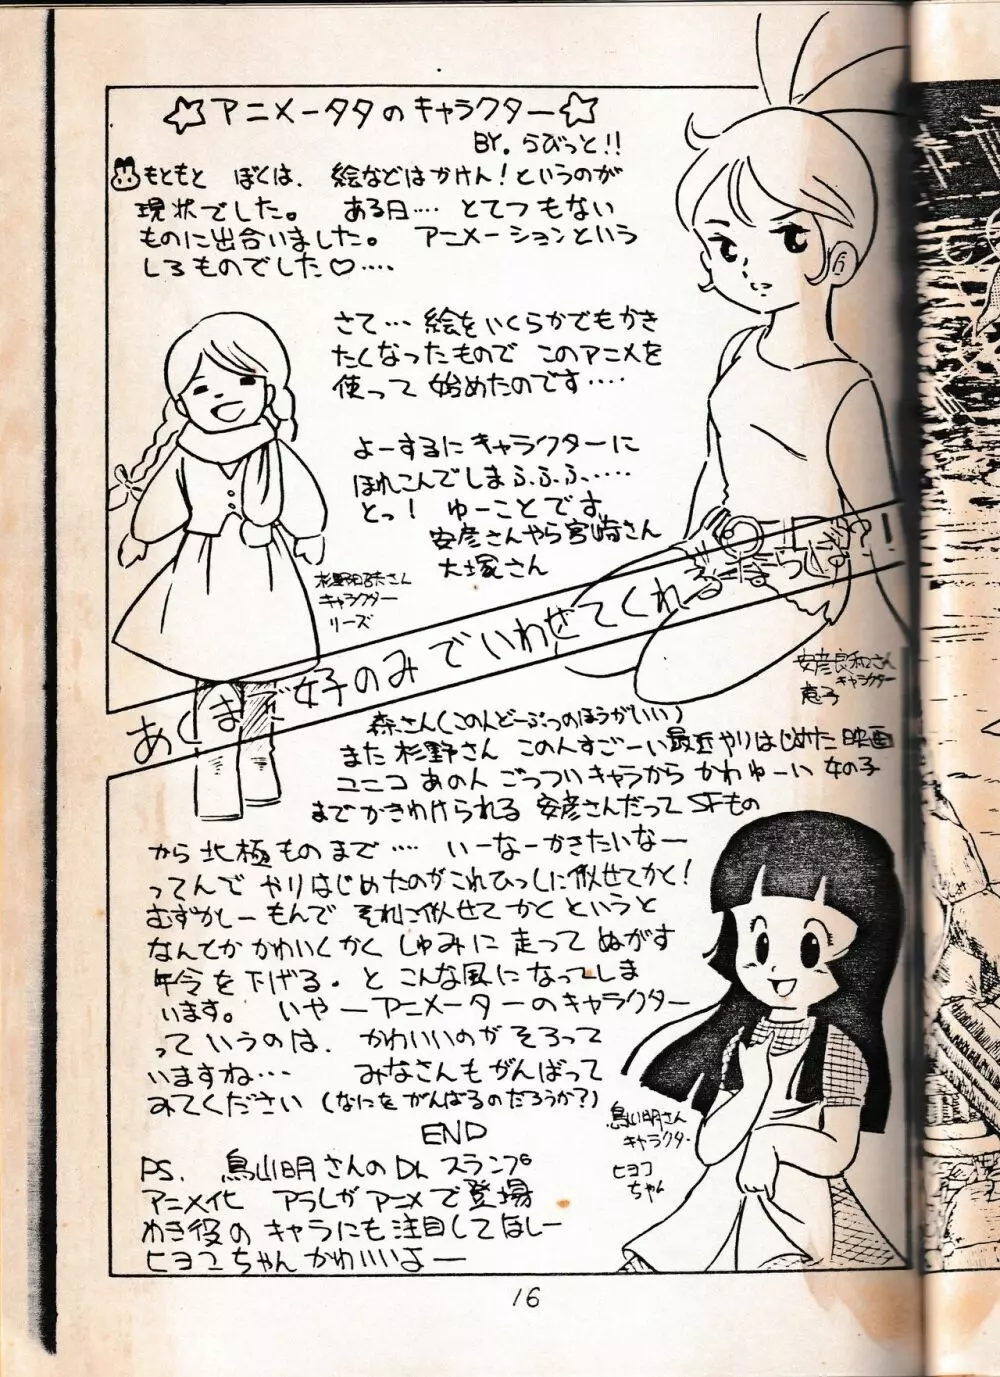 ☆アニメータタのキャラクター☆
BY. らびっと!!
もともと ぼくは、絵などはかけん!というのが
現状でした。 ある日…. とてつもない
ものに出合いました。 アニメーションという
しろものでした♡….
さて… 絵をいくらかでもかき
たくなったもので このアニメを
使って 始めたのです….
よーするにキャラクターに
ほれこんでしまふふふ……
とっ! ゆーことです。
安彦さんやら宮崎さん
大塚さん
杉野昭夫さん
キャラクター
リーズ
あくまで好のみでいわせてくれる ならしば!!
安彦良和さん
キャラクター
恵子
森さん(この人どーぶつのほうがいい)
また杉野さん この人すごーい最近やりはじめた映画
ユニコ あの人 ごっついキャラから かわゆーい 女の子
までかきわけられる 安彦さんだって SFもの
から北極ものまで…. いーなーかきたいなー
ってんで やりはじめたのがこれひっしに似せてかく!
むずかしーもんで それに似せて かくというと
なんてか かわいくかく しゅみに 走って ぬがす
年令を下げる. と こんな風になってしま
います。 いやーアニメーターのキャラクター
っていうのは、 かわいいのが そろって
いますね… みなさんもがんばって
みてください (なにをがんばるのだろうか?)
END
PS. 鳥山明さんのDr. スランプ
アニメ化 アラレがアニメで登場
わき役の キャラにも注目してほしー
ヒヨコちゃん かわいいよー
鳥山明さん
キャラクター
ヒヨコ
ちゃん
16